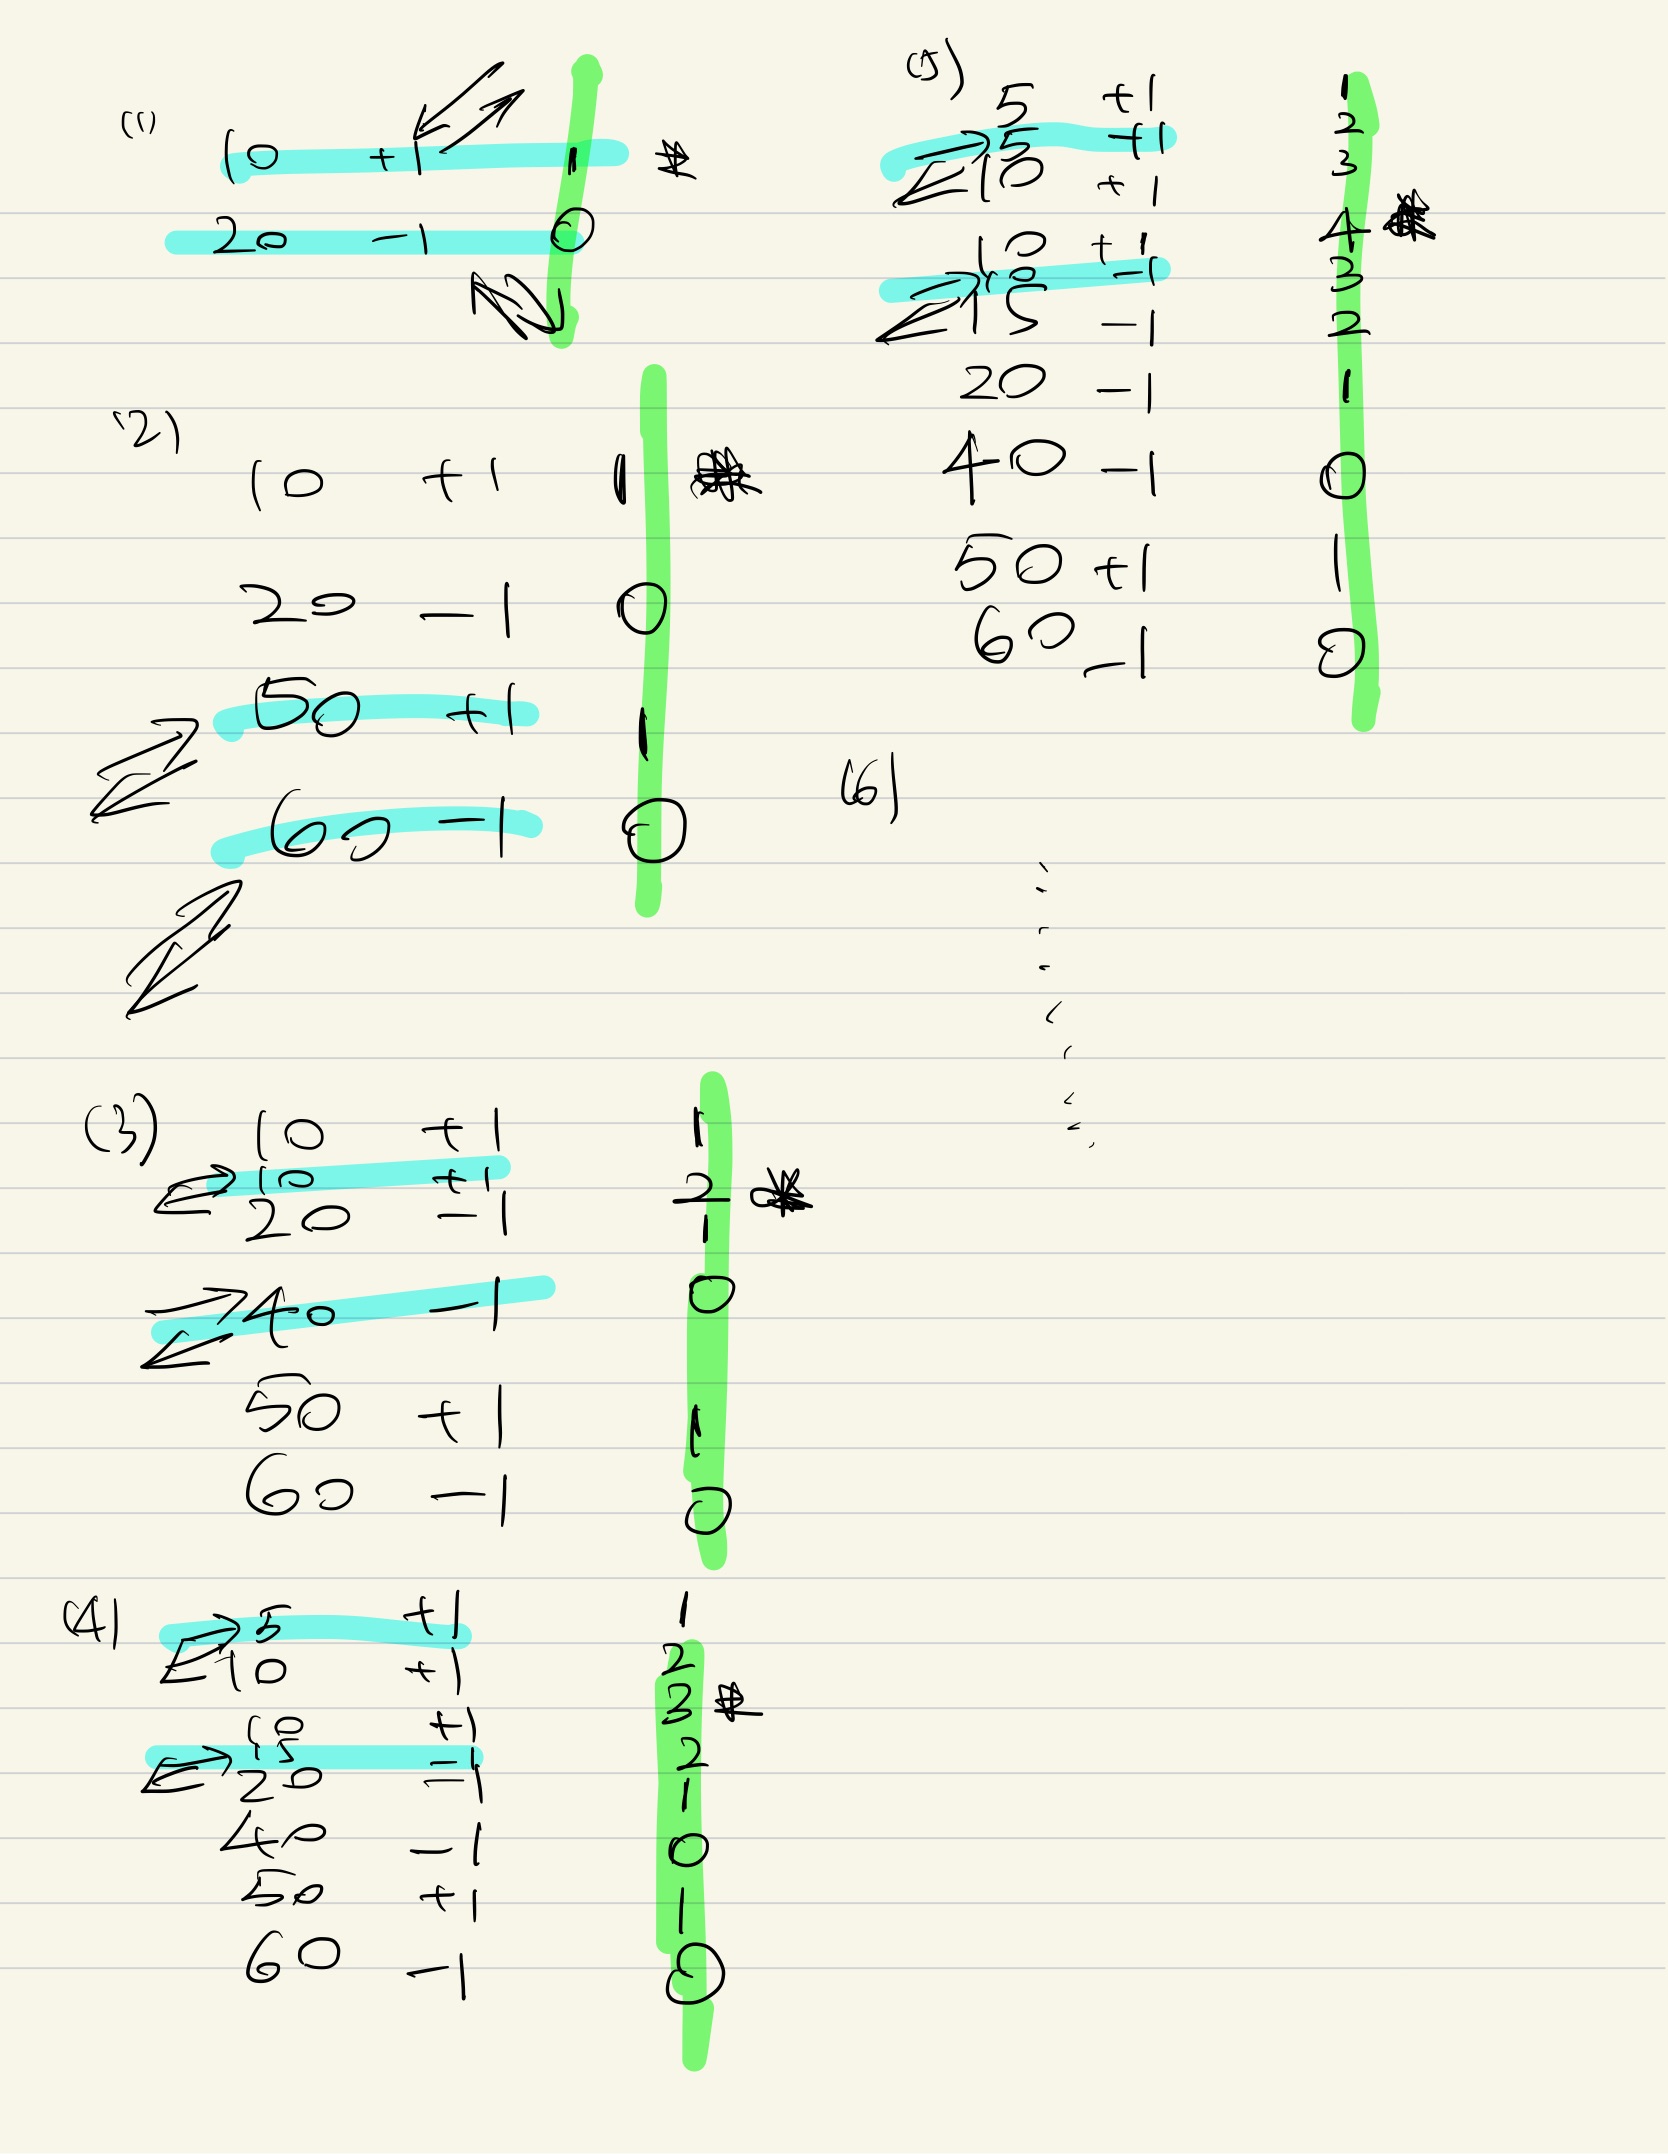 (1)
10 +1 1 *
20 -1 0
(2)
10 +1 1 *
20 -1 0
50 +1 1
60 -1 0
(3) 10 +1 1
10 +1 2 *
20 -1 1
40 -1 0
50 +1 1
60 -1 0
(4) 5 +1 1
10 +1 2
10 +1 3 *
15 -1 2
20 -1 1
40 -1 0
50 +1 1
60 -1 0
(5)
5 +1 1
5 +1 2
10 +1 3
10 +1 4 *
10 -1 3
15 -1 2
20 -1 1
40 -1 0
50 +1 1
60 -1 0
(6)